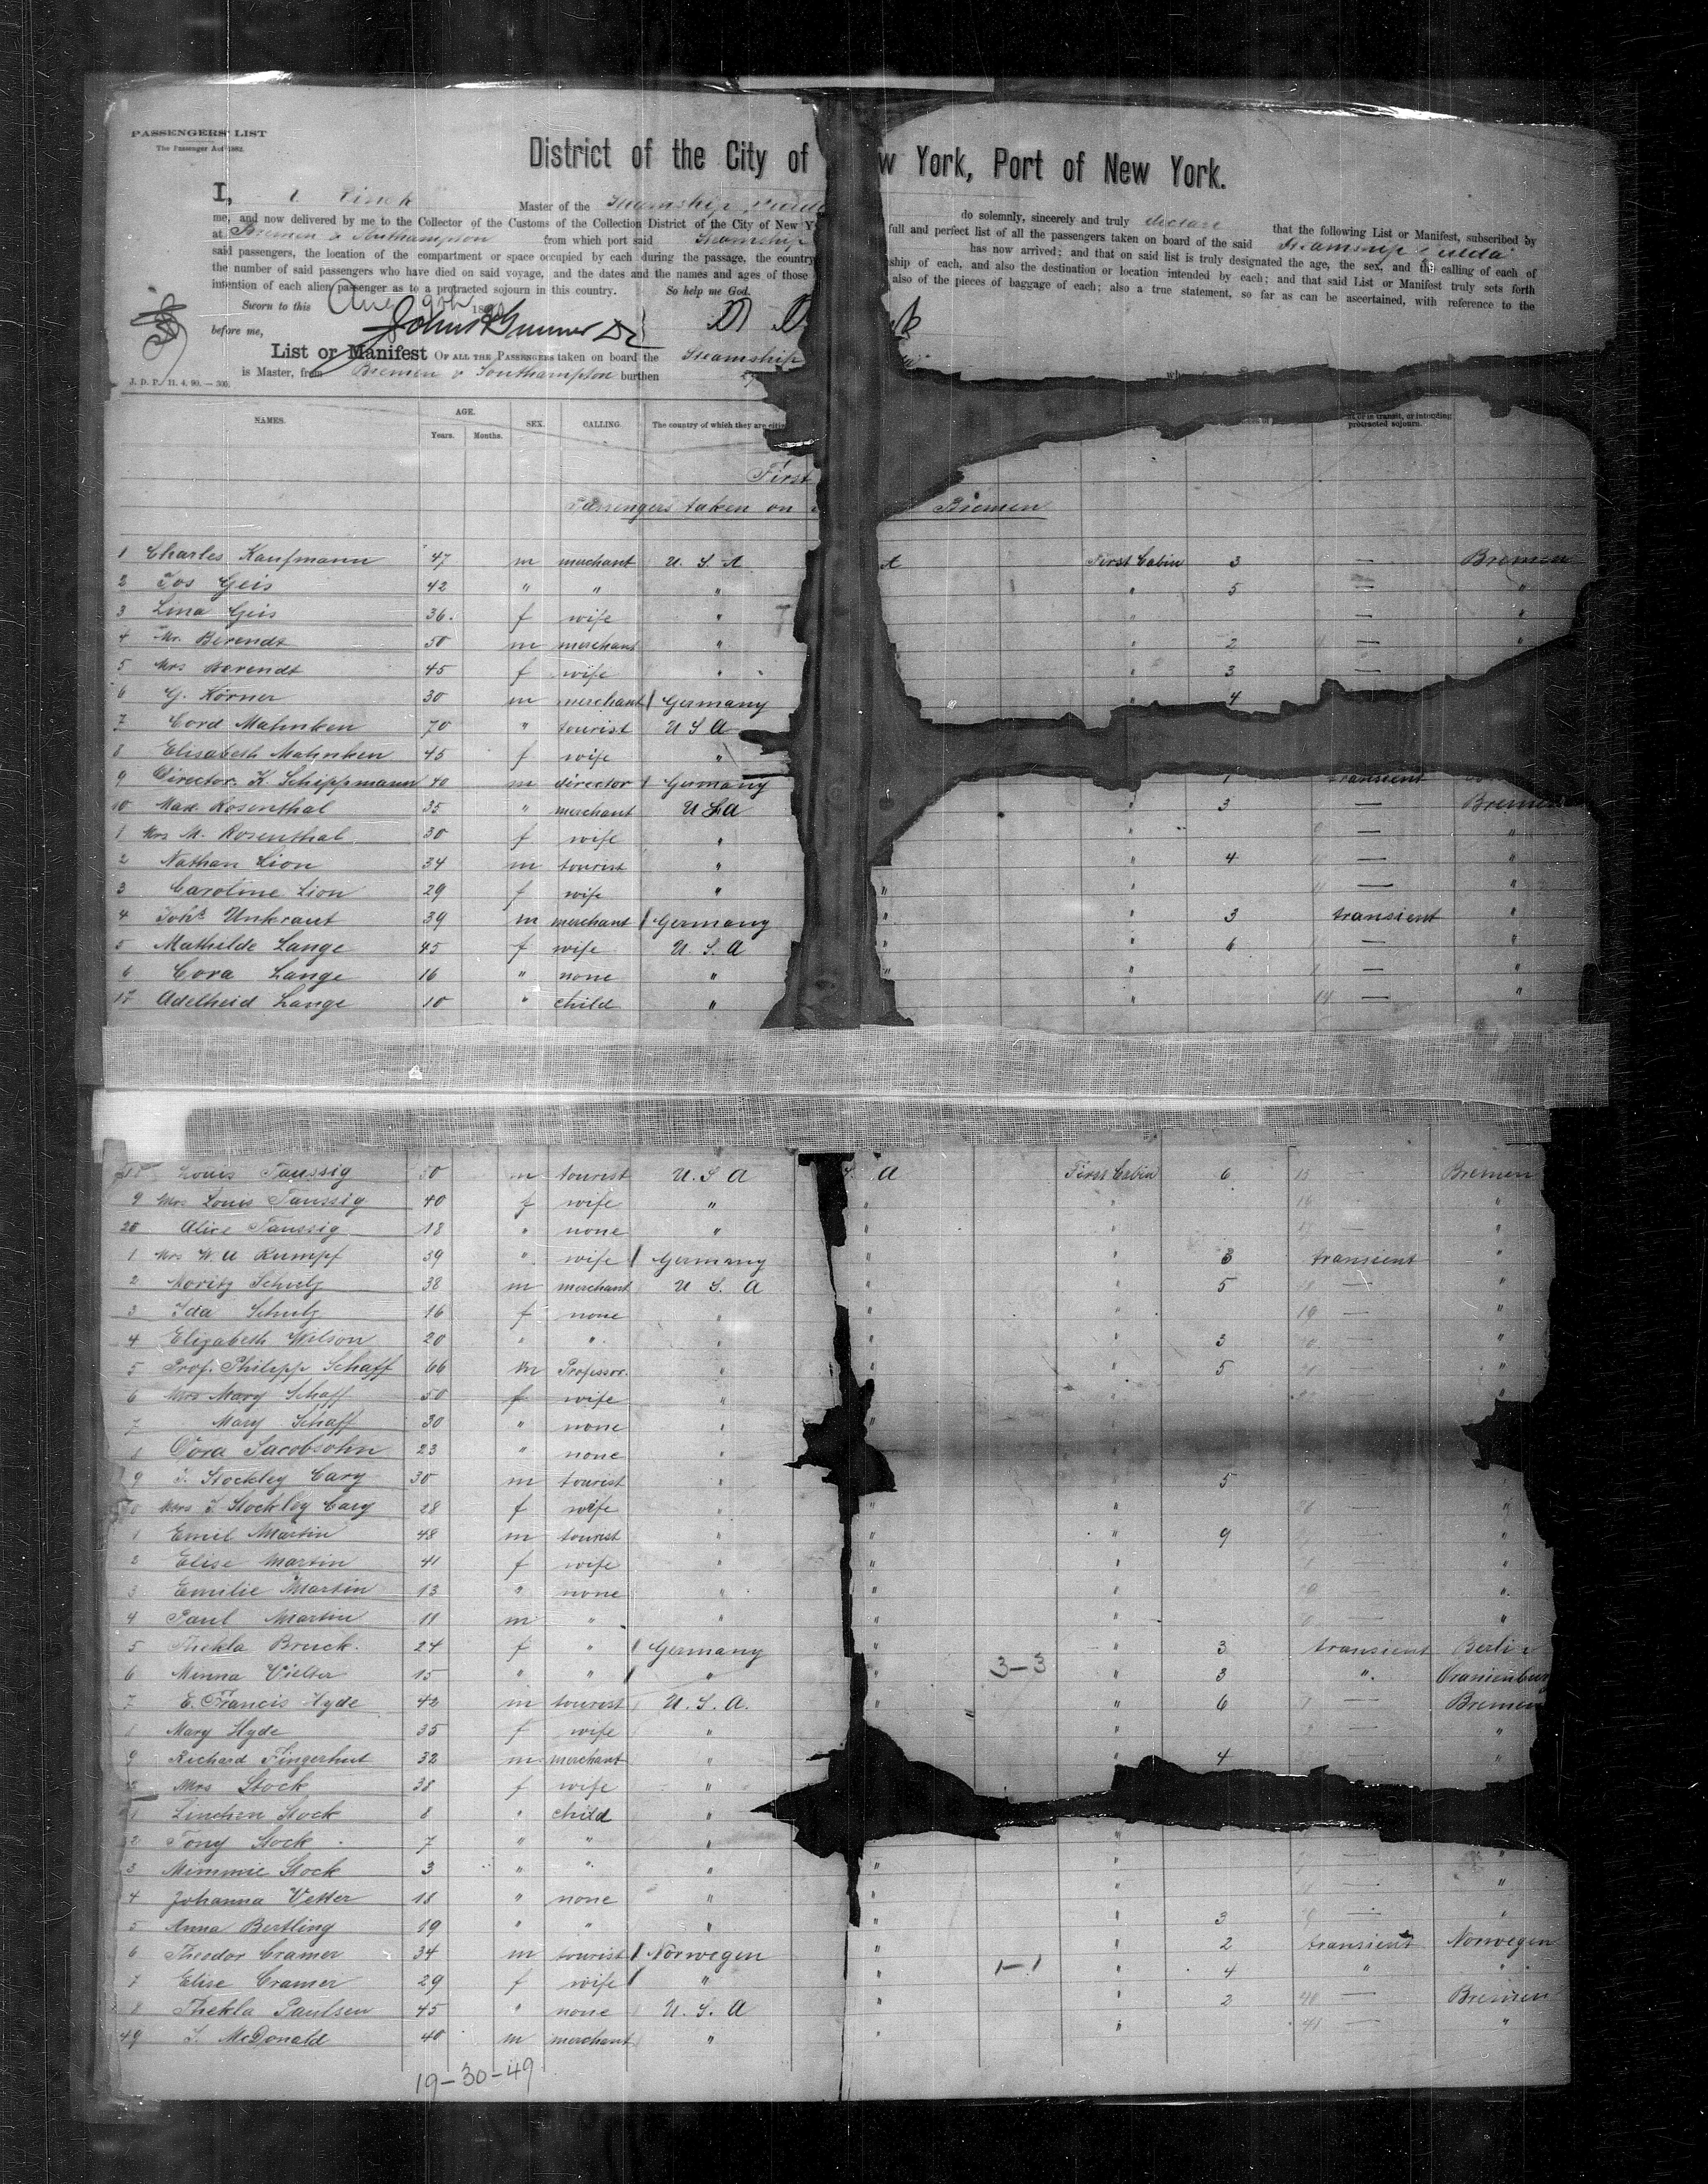 PASSENGERS' LIST
The Passenger Act 1882.
District of the City of w York, Port of New York.
I, Master of the Steamship do solemnly, sincerely and truly declare that the following List or Manifest, subscribed by
me, and now delivered by me to the Collector of the Customs of the Collection District of the City of New Y full and perfect list of all the passengers taken on board of the said Steamship
at Bremen & Southampton from which port said Steamship has now arrived; and that on said list is truly designated the age, the sex, and the calling of each of
said passengers, the location of the compartment or space occupied by each during the passage, the country ship of each, and also the destination or location intended by each; and that said List or Manifest truly sets forth
the number of said passengers who have died on said voyage, and the dates and the names and ages of those also of the pieces of baggage of each; also a true statement, so far as can be ascertained, with reference to the
intention of each alien passenger as to a protracted sojourn in this country. So help me God.
Sworn to this Aug 9th 1890
before me,
List or Manifest OF ALL THE PASSENGERS taken on board the Steamship
is Master, from Bremen & Southampton burthen
J. D. P. 11. 4. 90. — 300.
NAMES. AGE. SEX. CALLING. The country of which they are citi or in transit, or intending
Years. Months. protracted sojourn.
First
Passengers taken on Bremen
1 Charles Kaufmann 47 m merchant U. S. A A First Cabin 3 — Bremen
2 Jos Geis 42 " " " " 5 — "
3 Lina Geis 36. f wife " " — "
4 Mr. Berendt 50 m merchant " " 2 — "
5 Mrs Berendt 45 f wife " " 3 —
6 G. Körner 30 m merchant Germany " " 4
7 Cord Mahnken 70 " tourist U S A
8 Elisabeth Mahnken 45 f wife "
9 Director K. Schippmann 40 m director Germany 1 transient
10 Max Rosenthal 35 " merchant U S A " 3 — Bremen
1 Mrs M. Rosenthal 30 f wife " " — "
2 Nathan Lion 34 m tourist " " 4 — "
3 Caroline Lion 29 f wife " " " — "
4 Johs Unkraut 39 m merchant Germany " " 3 transient "
5 Mathilde Lange 45 f wife U. S. A " " 6 — "
6 Cora Lange 16 " none " " " — "
17 Adelheid Lange 10 " child " " 14 — "
18 Louis Taussig 50 m tourist U. S A S. A First Cabin 6 15 Bremen
9 Mrs Louis Taussig 40 f wife " " " 16 "
20 Alice Taussig 18 " none " " " 17 — "
1 Mrs W. U Rumpf 39 " wife Germany " " 3 transient "
2 Moritz Schulz 38 m merchant U S. A " " 5 18 — "
3 Ida Schulz 16 f none " " " 19 — "
4 Elizabeth Wilson 20 " " " " " 3 20 — "
5 Prof. Philipp Schaff 66 m Professor. " " " 5 21 — "
6 Mrs Mary Schaff 50 f wife " " "
7 Mary Schaff 30 " none " "
8 Jacobsohn 23 " none "
9 J. Stockley Cary 30 m tourist " " 5
30 Mrs J Stockley Cary 28 f wife " " " 26 — "
1 Emil Martin 48 m tourist " " " 9 — "
2 Elise Martin 41 f wife " " " — "
3 Emilie Martin 13 " none " " " — "
4 Paul Martin 11 m " " " " — "
5 Thekla Bruck. 24 f " Germany " " 3 transient Berlin
6 Minna 15 " " " " 3-3 " 3 " Oranienbur
7 E. Francis Hyde 42 m tourist U. S. A. " " 6 — Bremen
8 Mary Hyde 35 f wife " " " — "
9 Richard Fingerhut 32 m merchant " " 4 "
Mrs Stock 38 f wife "
1 Linchen Stock 8 " child "
2 Tony Stock 7 " " " "
3 Mimmie Stock 3 " " " " " — "
4 Johanna Vetter 18 " none " " " — "
5 Anna Bertling 19 " " " " " 3 — "
6 Theodor Cramer 34 m tourist Norwegen " " 2 transient Norwegen
7 Elise Cramer 29 f wife " " 1-1 " 4 " "
8 Thekla Paulsen 45 " none U. S. A " " 2 40 — Bremen
49 J. McDonald 40 m merchant " " " 41 — "
19-30-49